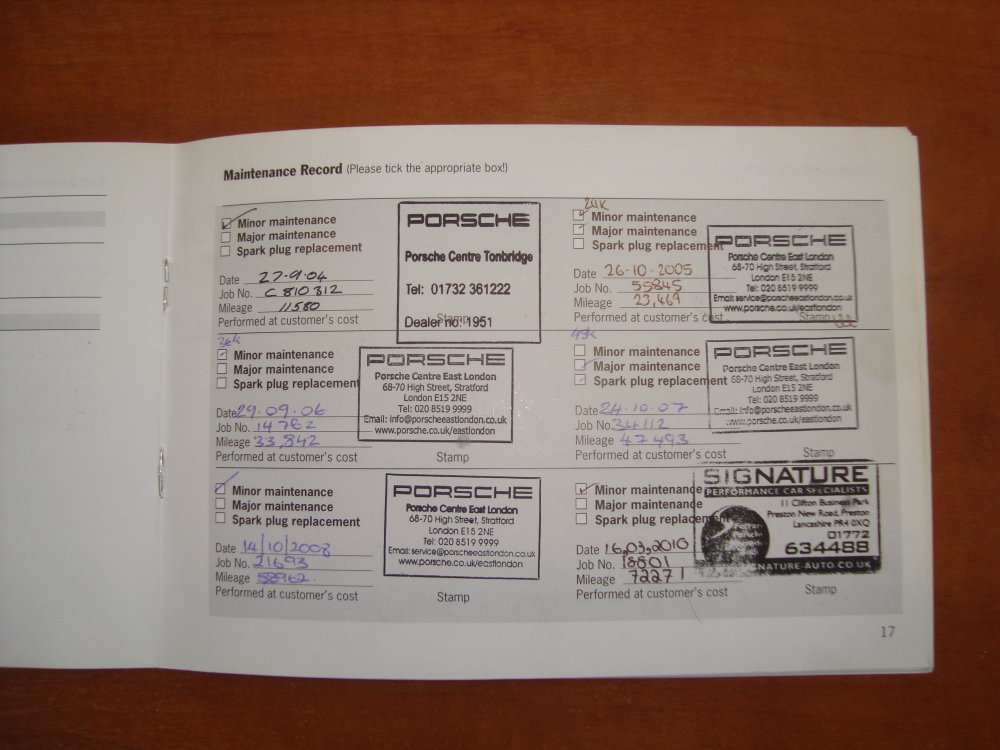 Maintenance Record (Please tick the appropriate box!)
Minor maintenance
Major maintenance
Spark plug replacement
Date 27-9-04
Job No. C 810 312
Mileage 11580
Performed at customer's cost
Stamp
PORSCHE
Porsche Centre Tonbridge
Tel: 01732 361222
Dealer no: 1951
24K
Minor maintenance
Major maintenance
Spark plug replacement
Date 26-10-2005
Job No. 55845
Mileage 23,469
Performed at customer's cost
Stamp
PORSCHE
Porsche Centre East London
68-70 High Street, Stratford
London E15 2NE
Tel: 020 8519 9999
Email: service@porscheeastlondon.co.uk
www.porsche.co.uk/eastlondon
36k
Minor maintenance
Major maintenance
Spark plug replacement
Date 29.09.06
Job No. 14762
Mileage 33,842
Performed at customer's cost
Stamp
PORSCHE
Porsche Centre East London
68-70 High Street, Stratford
London E15 2NE
Tel: 020 8519 9999
Email: info@porscheeastlondon.co.uk
www.porsche.co.uk/eastlondon
48k
Minor maintenance
Major maintenance
Spark plug replacement
Date 24.10.07
Job No. 34112
Mileage 47493
Performed at customer's cost
Stamp
PORSCHE
Porsche Centre East London
68-70 High Street, Stratford
London E15 2NE
Tel: 020 8519 9999
Email: info@porscheeastlondon.co.uk
www.porsche.co.uk/eastlondon
Minor maintenance
Major maintenance
Spark plug replacement
Date 14/10/2008
Job No. 21693
Mileage 58962
Performed at customer's cost
Stamp
PORSCHE
Porsche Centre East London
68-70 High Street, Stratford
London E15 2NE
Tel: 020 8519 9999
Email: service@porscheeastlondon.co.uk
www.porsche.co.uk/eastlondon
Minor maintenance
Major maintenance
Spark plug replacement
Date 16,03,2010
Job No. 18801
Mileage 72271
Performed at customer's cost
Stamp
SIGNATURE
PERFORMANCE CAR SPECIALISTS
11 Clifton Business Park
Preston New Road, Preston
Lancashire PR4 0XQ
01772
634488
NATURE-AUTO.CO.UK
17